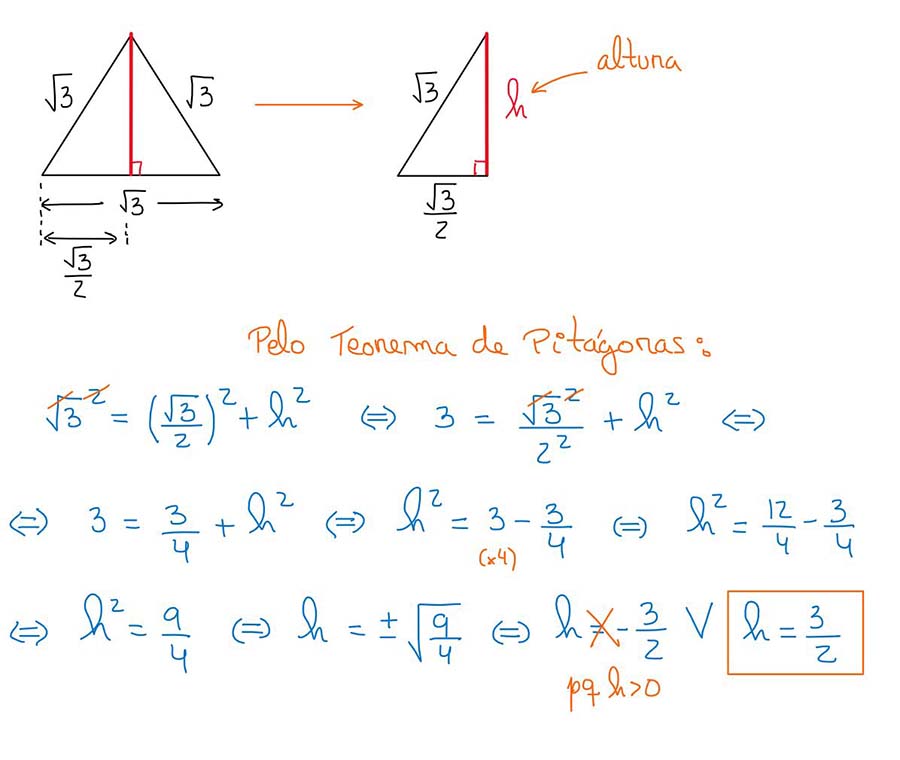 √3 √3 √3 h altura
√3
√3/2
√3/2
Pelo Teorema de Pitágoras:
√3² = (√3/2)² + h² ⇔ 3 = √3²/2² + h² ⇔
⇔ 3 = 3/4 + h² ⇔ h² = 3 - 3/4 ⇔ h² = 12/4 - 3/4
(x4)
⇔ h² = 9/4 ⇔ h = ±√(9/4) ⇔ h = -3/2 ∨ h = 3/2
pq h>0